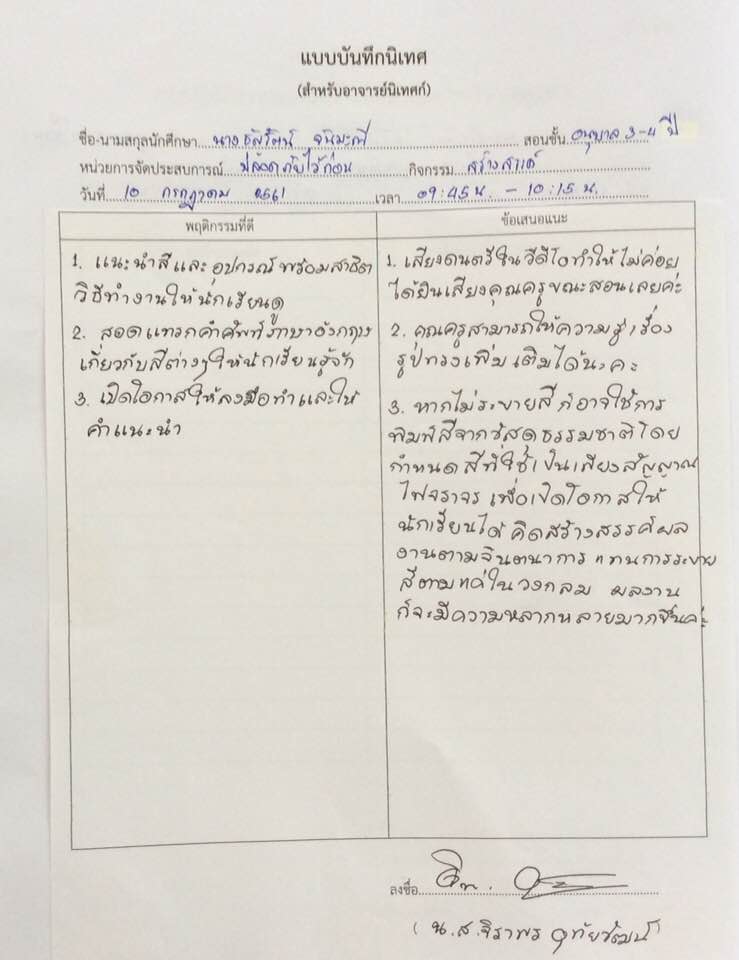 แบบบันทึกนิเทศ
(สำหรับอาจารย์นิเทศก์)
ชื่อ-นามสกุลนักศึกษา นาง สอนชั้น อนุบาล 3-4 ปี
หน่วยการจัดประสบการณ์ ปลอดภัยไว้ก่อน กิจกรรม สร้างสรรค์
วันที่ 10 กรกฎาคม 2561 เวลา 09:45 น. - 10:15 น.
พฤติกรรมที่ดี ข้อเสนอแนะ
1. แนะนำสีและอุปกรณ์พร้อมสาธิต
วิธีทำงานให้นักเรียนดู
2. สอดแทรกคำศัพท์ภาษาอังกฤษ
เกี่ยวกับสีต่างๆให้นักเรียนรู้จัก
3. เปิดโอกาสให้ลงมือทำและให้
คำแนะนำ
1. เสียงดนตรีในวีดีโอทำให้ไม่ค่อย
ได้ยินเสียงคุณครูขณะสอนเลยค่ะ
2. คุณครูสามารถให้ความรู้เรื่อง
รูปทรงเพิ่มเติมได้นะคะ
3. หากไม่ระบายสีก็อาจใช้การ
พิมพ์สีจากวัสดุธรรมชาติโดย
กำหนดสีที่ใช้เป็นเพียงสัญญาณ
ไฟจราจร เพื่อเปิดโอกาสให้
นักเรียนได้คิดสร้างสรรค์ผล
งานตามจินตนาการ แทนการระบาย
สีตามแค่ในวงกลม ผลงาน
ก็จะมีความหลากหลายมากขึ้นค่ะ
ลงชื่อ
(น.ส.จิราพร อุทัยวัฒน์)